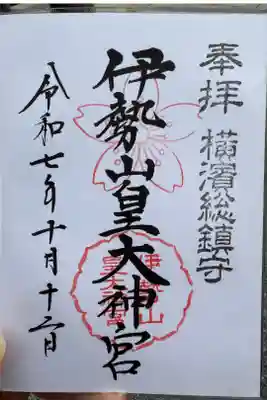 奉拝 横濱総鎮守
伊勢山皇大神宮
令和七年十月十二日
伊勢山
皇大神宮